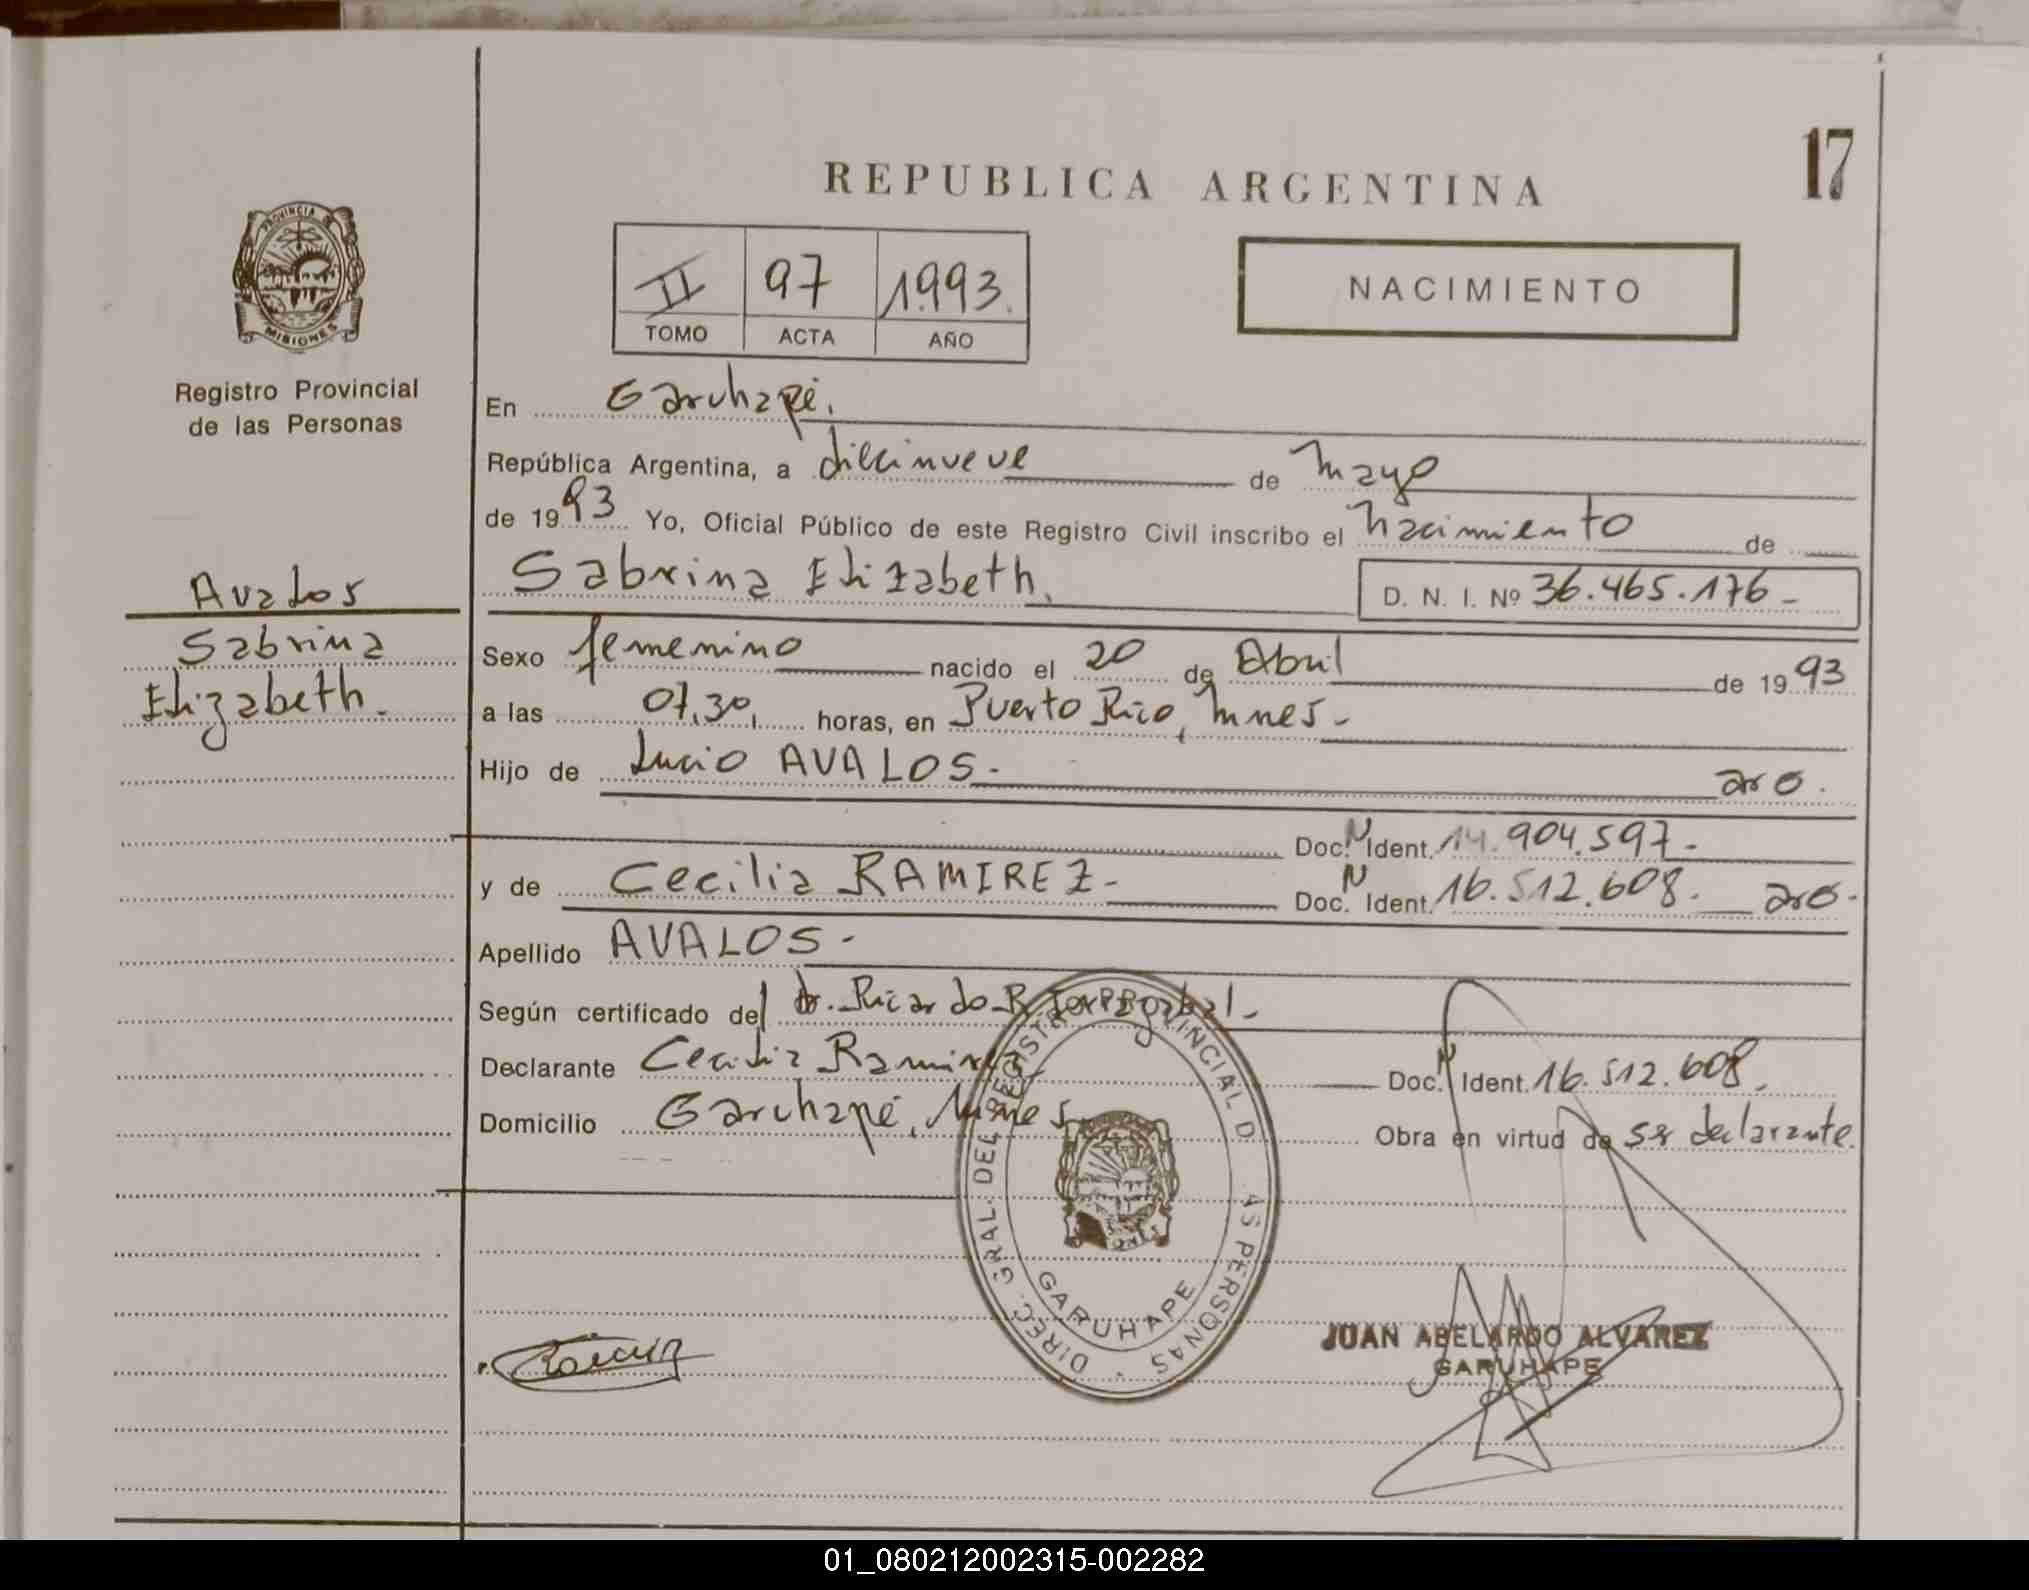 17
REPUBLICA ARGENTINA
PROVINCIA DE
MISIONES
Registro Provincial
de las Personas
II 97 1.993.
TOMO ACTA AÑO
NACIMIENTO
En Garuhapé.
República Argentina, a diecinueve de mayo
de 1993 Yo, Oficial Público de este Registro Civil inscribo el nacimiento de
Sabrina Elizabeth. D. N. I. Nº 36.465.176-
Avalos
Sabrina
Elizabeth.
Sexo femenino nacido el 20 de Abril de 1993
a las 07,30, horas, en Puerto Rico, Mnes-
Hijo de Lucio AVALOS- aro.
Doc. N Ident. 14.904.597-
y de Cecilia RAMIREZ- Doc. N Ident. 16.512.608. aro-
Apellido AVALOS-
Según certificado del dr. Ricardo R.
Declarante Cecilia Ramirez Doc. N Ident. 16.512.608.
Domicilio Garuhapé, Mnes Obra en virtud de ser declarante.
DIREC. GRAL. DEL REGISTRO PROVINCIAL D AS PERSONAS
GARUHAPE
JUAN ABELARDO ALVAREZ
GARUHAPE
01_080212002315-002282